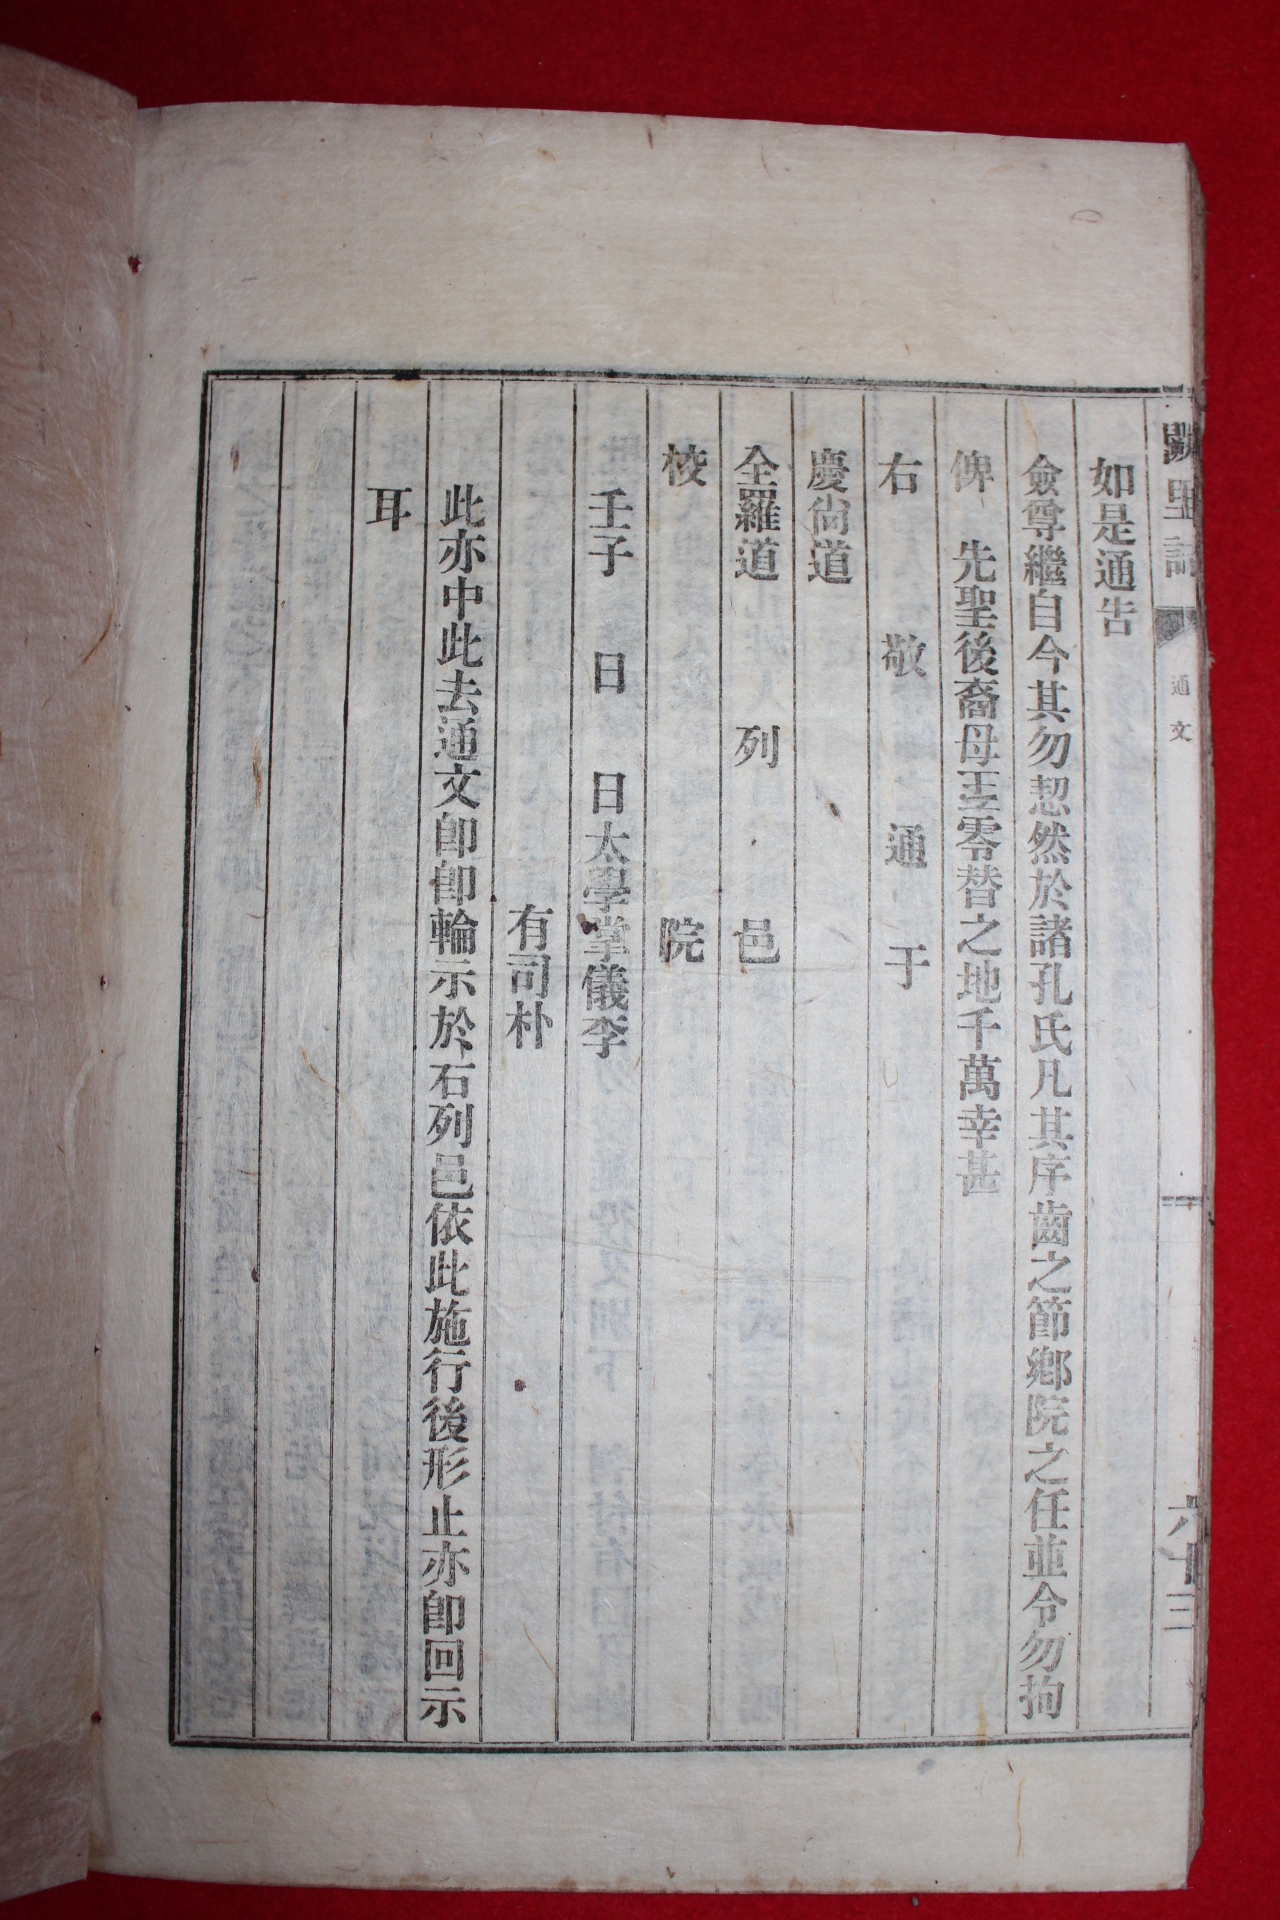 闕里誌
通文
六十三
如是通告
僉尊繼自今其勿恝然於諸孔氏凡其序齒之節鄕院之任並令勿拘
俾　先聖後裔毋至零替之地千萬幸甚
右敬通于
慶尙道
全羅道列邑
校院
壬子　日　日太學堂儀李
有司朴
此亦中此去通文卽卽輪示於右列邑依此施行後形止亦卽回示
耳